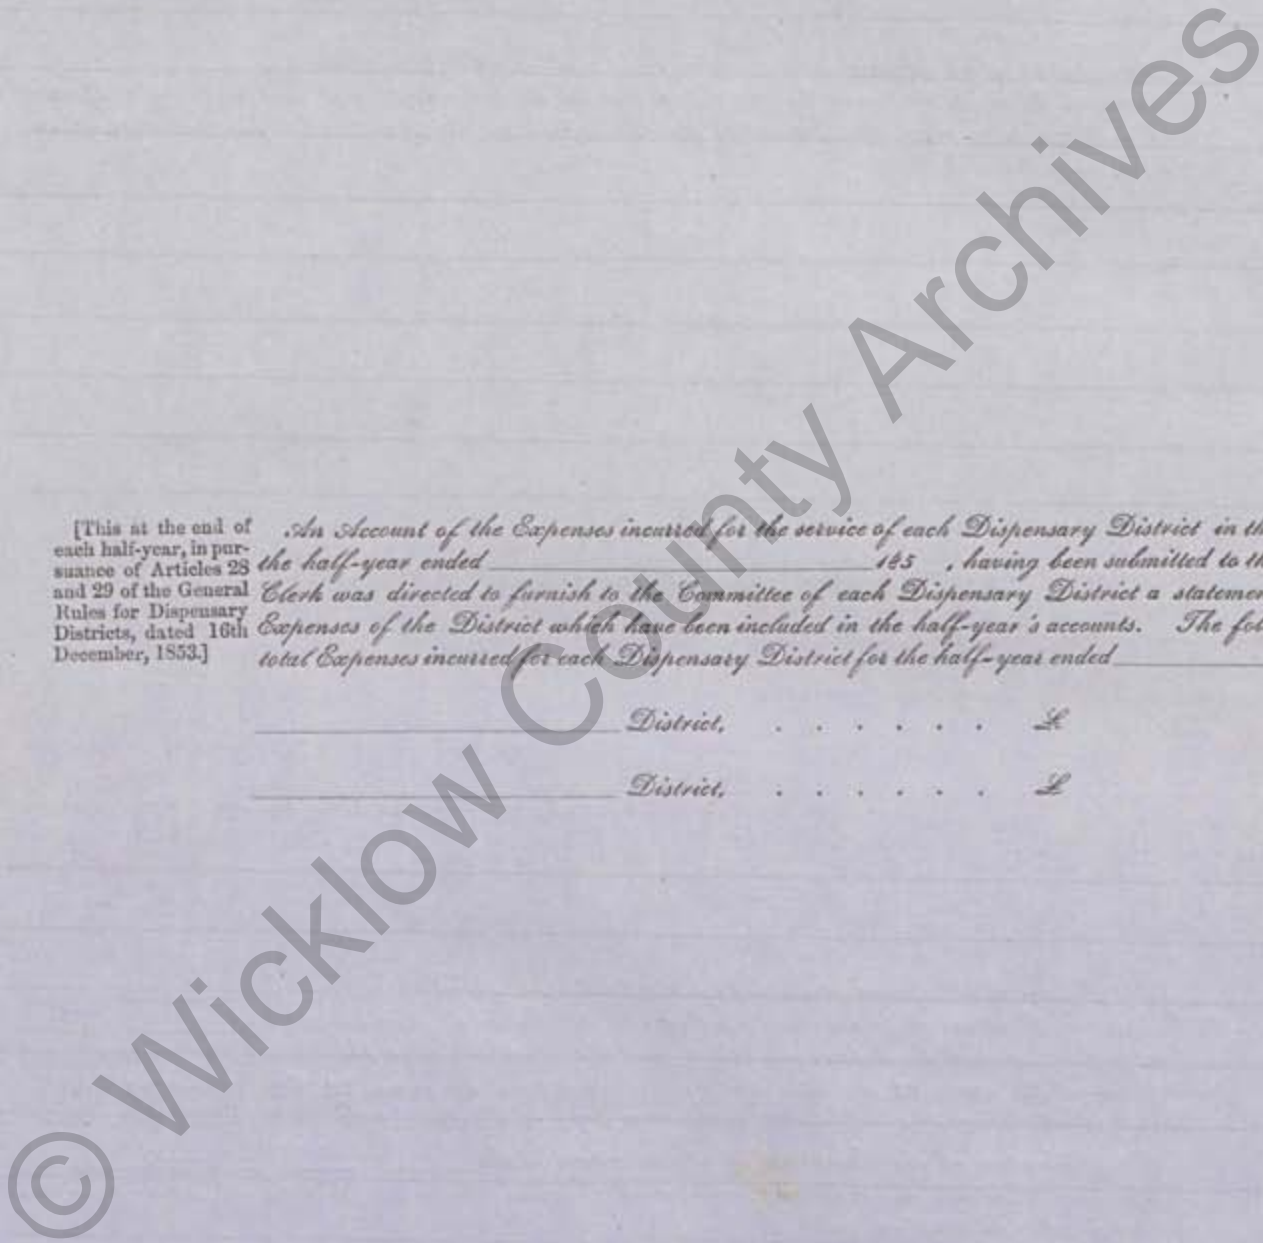 [This at the end of
each half-year, in pur-
suance of Articles 28
and 29 of the General
Rules for Dispensary
Districts, dated 16th
December, 1853.]
An Account of the Expenses incurred for the service of each Dispensary District in th
the half-year ended 185 , having been submitted to th
Clerk was directed to furnish to the Committee of each Dispensary District a statemen
Expenses of the District which have been included in the half-year's accounts. The fol
total Expenses incurred for each Dispensary District for the half-year ended
District, . . . . . . £
District, . . . . . . £
© Wicklow County Archives